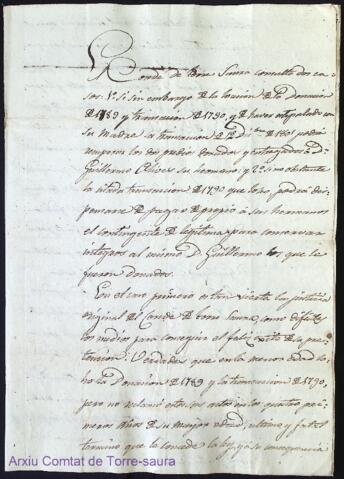 Conde de Torre Saura consulta dos ca-
sos: 1º si sin embargo de la donacion
de 1789 y transaccion de 1790, y de haver estipulado con
su Madre la transaccion de 12 de 1801 podrá
recuperar los dos predios donados y entregados a Dn
Guillermo Olives su hermano; y 2º si no obstante
la citada transaccion de 1790 que hizo podrá dis-
pensarse de pagar de propio á sus hermanos
el contingente de legitima para conservar
integros al mismo D. Guillermo los que le
fueron donados.
En el caso primero es tan cierta la justicia
original del Conde de Torre Saura, como dificiles
los medios para conseguir el feliz exito de su pre-
tension: Verdad es que en la menor edad
hizo la Donacion de 1789 y la transaccion de 1790,
pero no reclamó estos actos en los quatro pri-
meros años de su mayor edad, ultimo y fatal
termino que le concede la ley, y á su consequencia
Arxiu Comtat de Torre-saura